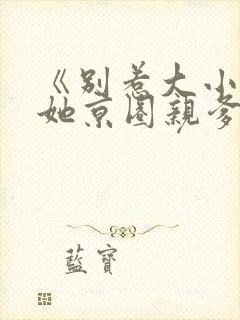 《别惹大小
她京圈亲爹
藍寶